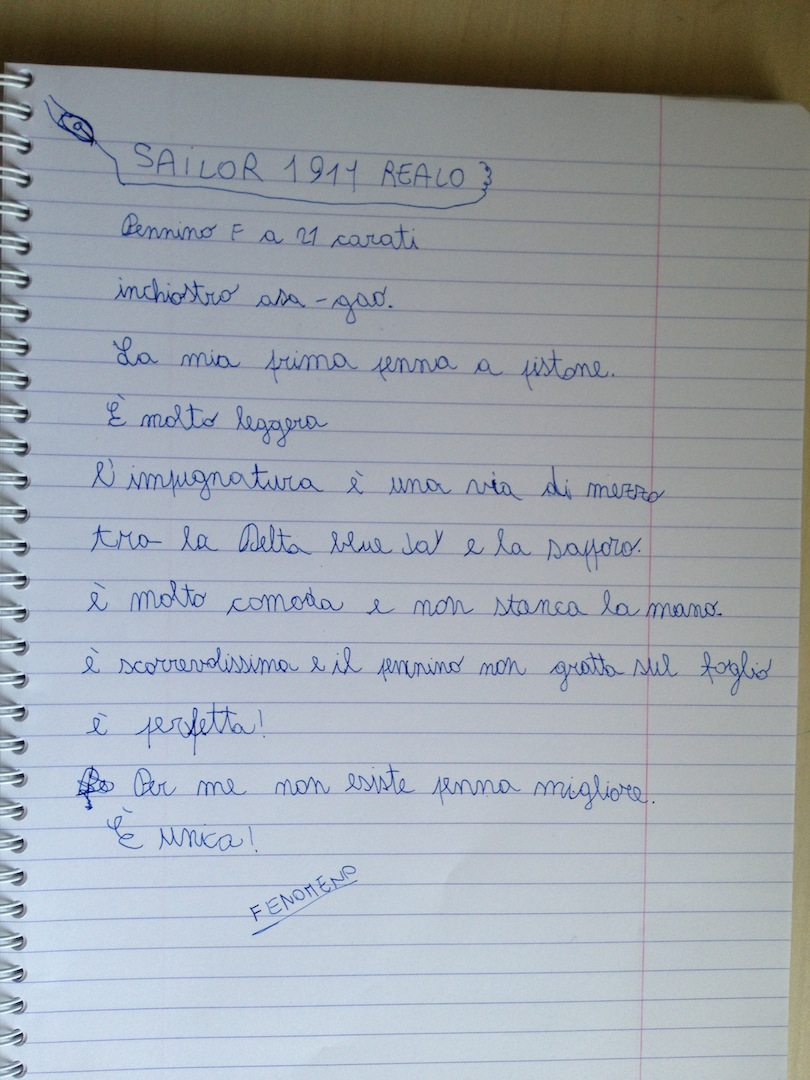 SAILOR 1911 REALO
Pennino F a 21 carati
inchiostro asa-gao.
La mia prima penna a pistone.
È molto leggera
L'impugnatura è una via di mezzo
tra la Delta blue
e la sapporo.
è molto comoda e non stanca la mano.
è scorrevolissima e il pennino non gratta sul foglio
è perfetta!
Per me non esiste penna migliore.
È unica!
FENOMENO